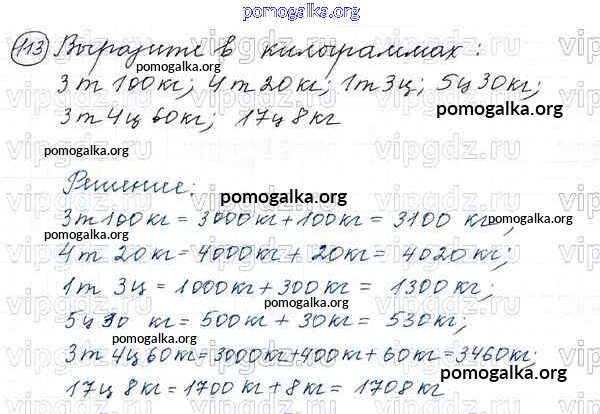 pomogalka.org
113 Выразите в килограммах:
pomogalka.org
3 т 100 кг; 4 т 20 кг; 1 т 3 ц; 5 ц 30 кг;
pomogalka.org
3 т 4 ц 60 кг; 17 ц 8 кг
pomogalka.org
pomogalka.org
Решение:
pomogalka.org
3 т 100 кг = 3000 кг + 100 кг = 3100 кг;
pomogalka.org
pomogalka.org
4 т 20 кг = 4000 кг + 20 кг = 4020 кг;
pomogalka.org
1 т 3 ц = 1000 кг + 300 кг = 1300 кг;
pomogalka.org
5 ц 30 кг = 500 кг + 30 кг = 530 кг;
pomogalka.org
3 т 4 ц 60 кг = 3000 кг + 400 кг + 60 кг = 3460 кг;
pomogalka.org
17 ц 8 кг = 1700 кг + 8 кг = 1708 кг